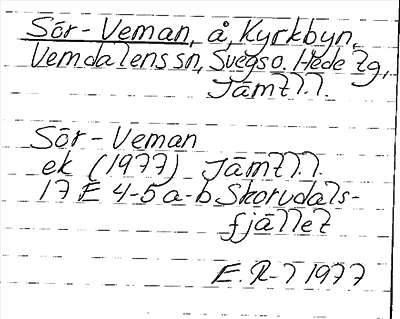 Sör-Veman, å, Kyrkbyn,
Vemdalens sn, Svegs o. Hede tg,
Jämtl.l.
Sör-Veman
ek (1977) Jämtl.l.
17 E 4-5 a-b Skorvdals-
fjället
E.R-l 1977